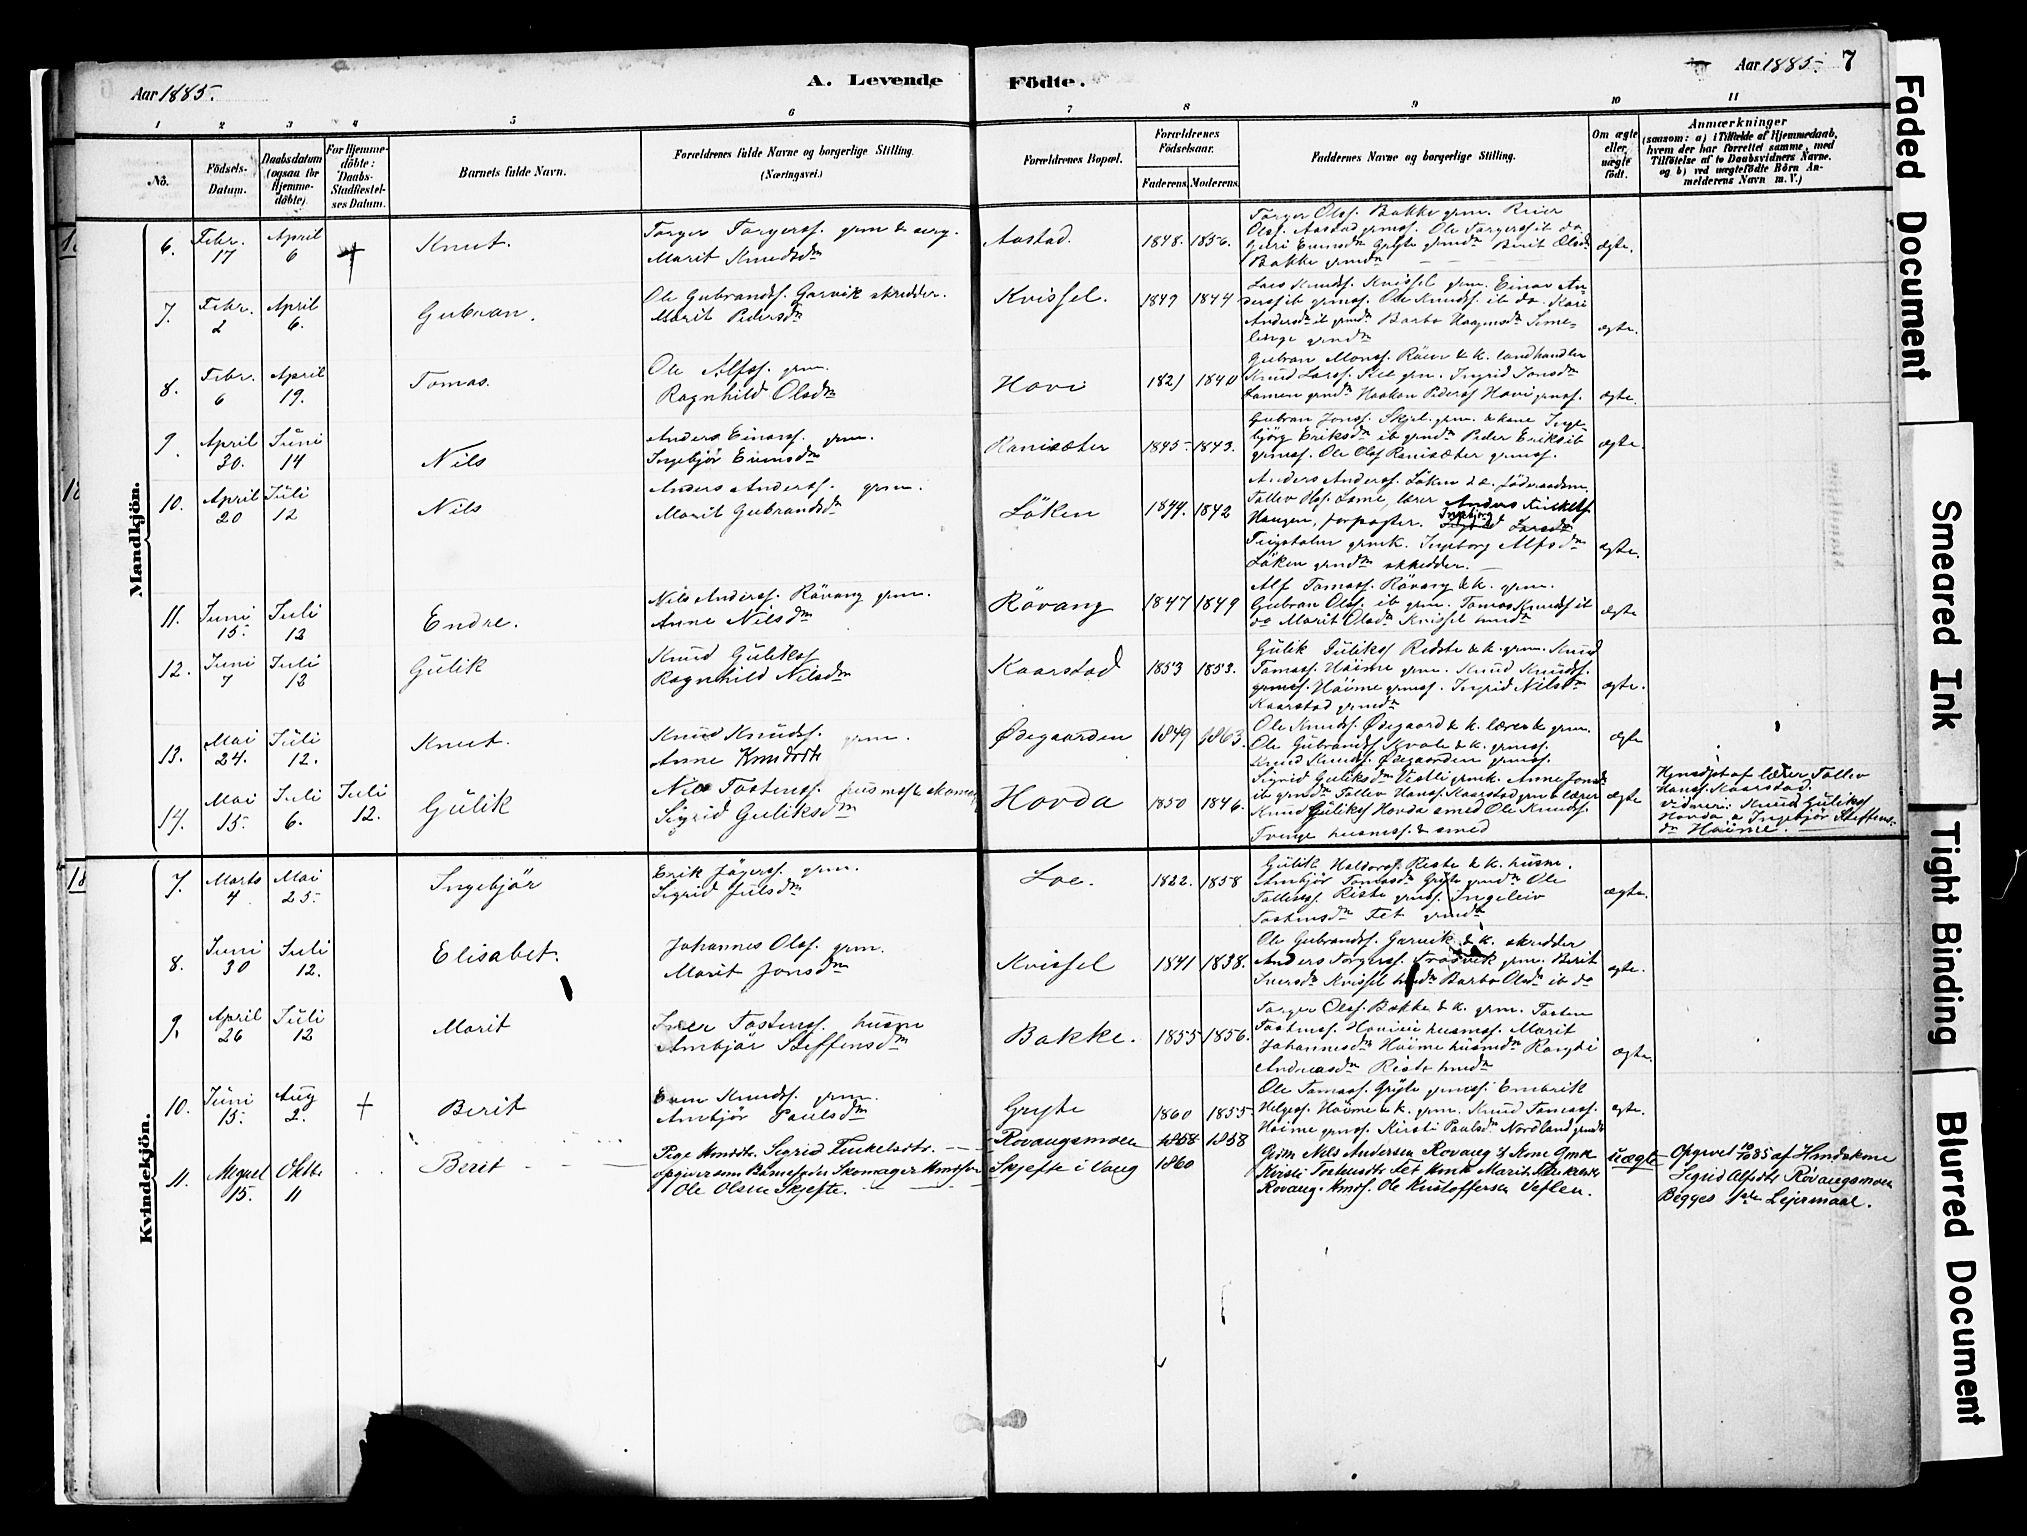 Aar 1885.
A. Levende Födte.
Aar 1885. 7
1 2 3 4 5 6 7 8 9 10 11
No.
Födsels-Datum.
Daabsdatum (ogsaa for Hjemme-döbte).
For Hjemme-döbte: Daabs-Stadfæstel-ses Datum.
Barnets fulde Navn.
Forældrenes fulde Navne og borgerlige Stilling.
(Næringsvei.)
Forældrenes Bopæl.
Forældrenes Födselsaar.
Faderens. Moderens.
Faddernes Navne og borgerlige Stilling.
Om ægte eller uægte födt.
Anmærkninger
(saasom: a) i Tilfælde af Hjemmedaab, hvem der har forrettet samme, med Tilföielse af to Daabsvidners Navne, og b) ved uægtefödte Börn An-melderens Navn m. V.)
Mandkjön.
6. Febr. 17 April 6 + Knut.
Torger Torgerss. grm & serg.
Marit Knudsdn
Aastad. 1848. 1856.
Torger Olss. Bakke grm. Reier
Olss. Aastad grmss. Ole Torgerss ib do
Guri Evensdn Gryte grmdn Berit Olsdn
Bakke grmdn
ægte.
7. Febr. 2 April 6. Gubran.
Ole Gubrandss. Garvik skredder.
Marit Pedersdn
Kvissel. 1849 1844
Lars Knudss. Kvissel grm. Einar An-
derss ib grmss. Ole Knudss. ib do. Kari
Andersdn ib grmdn Barbo Haagensdn Seme-
lenge grmdn
ægte.
8. Febr. 6 April 19. Tomas.
Ole Alfss. grm.
Ragnhild Olsdn
Hovi 1821 1840
Gubran Monss. Röine & k. landhandler
Knud Larss. grm. Ingrid Jonsdn
Lomen grmdn Haaken Pederss Hovi grmss.
ægte.
9. April 30. Juni 14 Nils
Anders Einarss. grm.
Ingebjör Evensdn
Ranisæter 1845- 1843.
Gubran Jonss. Skjel. grm. & kone Inge-
björg Eriksdn ib grmdn Peder Eriks ib
grmss. Ole Olss Ranisæter grmss.
ægte.
10. April 20 Juli 12 Nils
Anders Anderss. grm.
Marit Gubrandsdn
Löken 1844. 1842
Anders Anderss. Löken & k. Föderaadsm.
Tollev Olss. Lome, lærer Anders
Haugen, forpagter. Ingebjörg Larsdn
grmk. Ingeborg Alfsdn
Löken grmdn skredder.
ægte.
11. Juni 15. Juli 12 Endre.
Nils Anderss. Rövang grm.
Anne Nilsdn
Rövang 1847 1849
Alf Tomass. Rövang & k. grm.
Gubran Olss. ib grm. Tomas Knudss ib
do Marit Olsdn Kvissel hmdn
ægte
12. Juni 7 Juli 12 Gülik
Knud Gulikss
Ragnhild Nilsdn
Kaarstad 1853 1853.
Gülik Gulikss Redste & k. grm. Knud
Tomass. Höime grm. Knud Knudss.
grmss. Höime grmss. Ingrid Nilsdn
Kaarstad grmdn
ægte.
13. Mai 24. Juli 12. Knut.
Knud Knudss. grm.
Anne Knudsdtr
Ödegaarden 1849 1863.
Ole Knudss. Ödegaard & k. lærer & grm.
Ole Gubrandss Kvale & k. grmss.
Knud Knudss. Ödegaarden grmss.
ægte
14. Mai 15. Juli 6. Juli 12. Gülik
Nils Tostenss. husm & skomag
Sigrid Guliksdn
Hovda 1850 1846.
Sigrid Guliksdn Vistli grmk. Anne Jonsdn
ib grmdn Tollev Hanss. Kaarstad grm & lærer
Knud Gülikss Hovda smed Ole Knudss.
Tvenge husmss. & smed
ægte
Hjemdöpt af lærer Tollev
Hanss. Kaarstad.
Vidner: Knud Gülikss
Hovda & Ingebjör Steffens-
dn Höime.
Kvindekjön.
7. Marts 4 Mai 25- Ingebjör
Erik Jögerss. grm.
Sigrid Julsdn
Loe. 1822. 1858
Gülik Haldorss. Riste & k. husm.
Ambjör Tomasdn Gryte grmdn Ole
Tollevss. Riste grmss. Ingeleiv
Tostensdn Fet grmdn
ægte.
8. Juni 30 Juli 12. Elisabet.
Johannes Olss. grm.
Marit Jonsdn
Kvissel 1841 1838.
Ole Gubrandss. Garvik & k. skredder
Anders Torgerss. grm. Berit
Iversdn Kvissel hmdn Barbo Olsdn ib do
ægte.
9. April 26 Juli 12 Marit
Iver Tostenss. husm
Ambjör Steffensdn
Bakke. 1855 1856.
Torger Olss. Bakke & k. grm. Tosten
Tostenss. husmss. Marit
Johannesdn Höime husmdn Rangdi
Andreasdn Riste hmdn
ægte.
10. Juni 15. Aug 2. + Berit
Even Knudss. grm.
Ambjör Paulsdn
Gryte 1860 1855
Ole Tomass. Gryte grmss. Embrik
Helgess. Höime & k. grm. Knud Tomass.
Höime grmss. Kirsti Paulsdn Nordland grmdn
ægte.
11. August 15. Oktbr 11 Berit
Pige Sigrid
opgiver som Barnefader Skomager
Ole Olsen Skjefte.
Rövangsmoen 1858 1858
Skjefte i Vang 1860
Grdm Nils Andersen Rövang & Kone Gmk
Kirsti Tostensdtr Fet Marit
Rövang Ole Kristoffersen Veflen.
uægte
Opgivet af
Sigrid Alfsdtr Rövangsmoen
Begges 1ste Leiermaal.
Faded Document
Smeared Ink
Tight Binding
Blurred Document